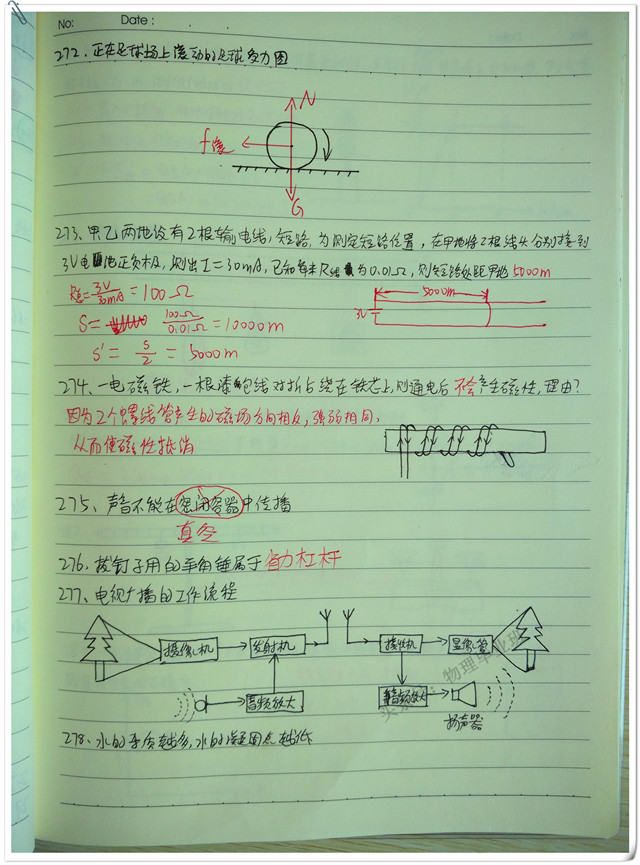 No:
Date :
272、正在足球场上滚动的足球受力图
N
f滚
G
273、甲乙两地设有2根输电线，短路，为测定短路位置，在甲地将2根线头分别接到
3V电池正负极，测出I=30mA，已知每米R线为0.01Ω，则短路处距甲地5000m
R总=3V/30mA=100Ω
S=100Ω/0.01Ω=10000m
S'=S/2=5000m
5000m
3V
274、一电磁铁，一根漆包线对折后绕在铁芯上，则通电后不会产生磁性，理由？
因为2个螺线管产生的磁场方向相反，强弱相同，
从而使磁性抵消
275、声音不能在密闭容器中传播
真空
276、拔钉子用的羊角锤属于省力杠杆
277、电视广播的工作流程
摄像机
发射机
接收机
显像管
音频放大
音频放大
扬声器
物理毕业班
278、水的杂质越多，水的凝固点越低